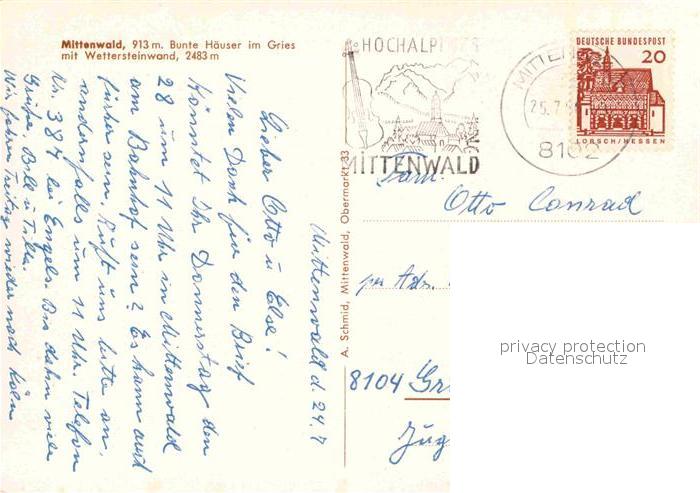 Mittenwald, 913 m. Bunte Häuser im Gries
mit Wettersteinwand, 2483 m
Mittenwald d. 24.7
Lieber Otto u Else!
Vielen Dank für den Brief
Könntet Ihr Donnerstag den
28 um 11 Uhr in Mittenwald
am Bahnhof sein? Es kann auch
früher sein, Ruft uns bitte an,
andernfalls um 11 Uhr. Telefon
Nr. 384 bei Engels. Bis dahin viele
Grüße, Bill u Tilla.
Wir fahren Freitag wieder nach Köln
A. Schmid, Mittenwald, Obermarkt 33
HOCHALPINES
MITTENWALD
MITTEN
25.7.
8102
DEUTSCHE BUNDESPOST
20
LORSCH/HESSEN
Fam.
Otto Conrad
per Adr.
8104 Gr
Zug
privacy protection
Datenschutz